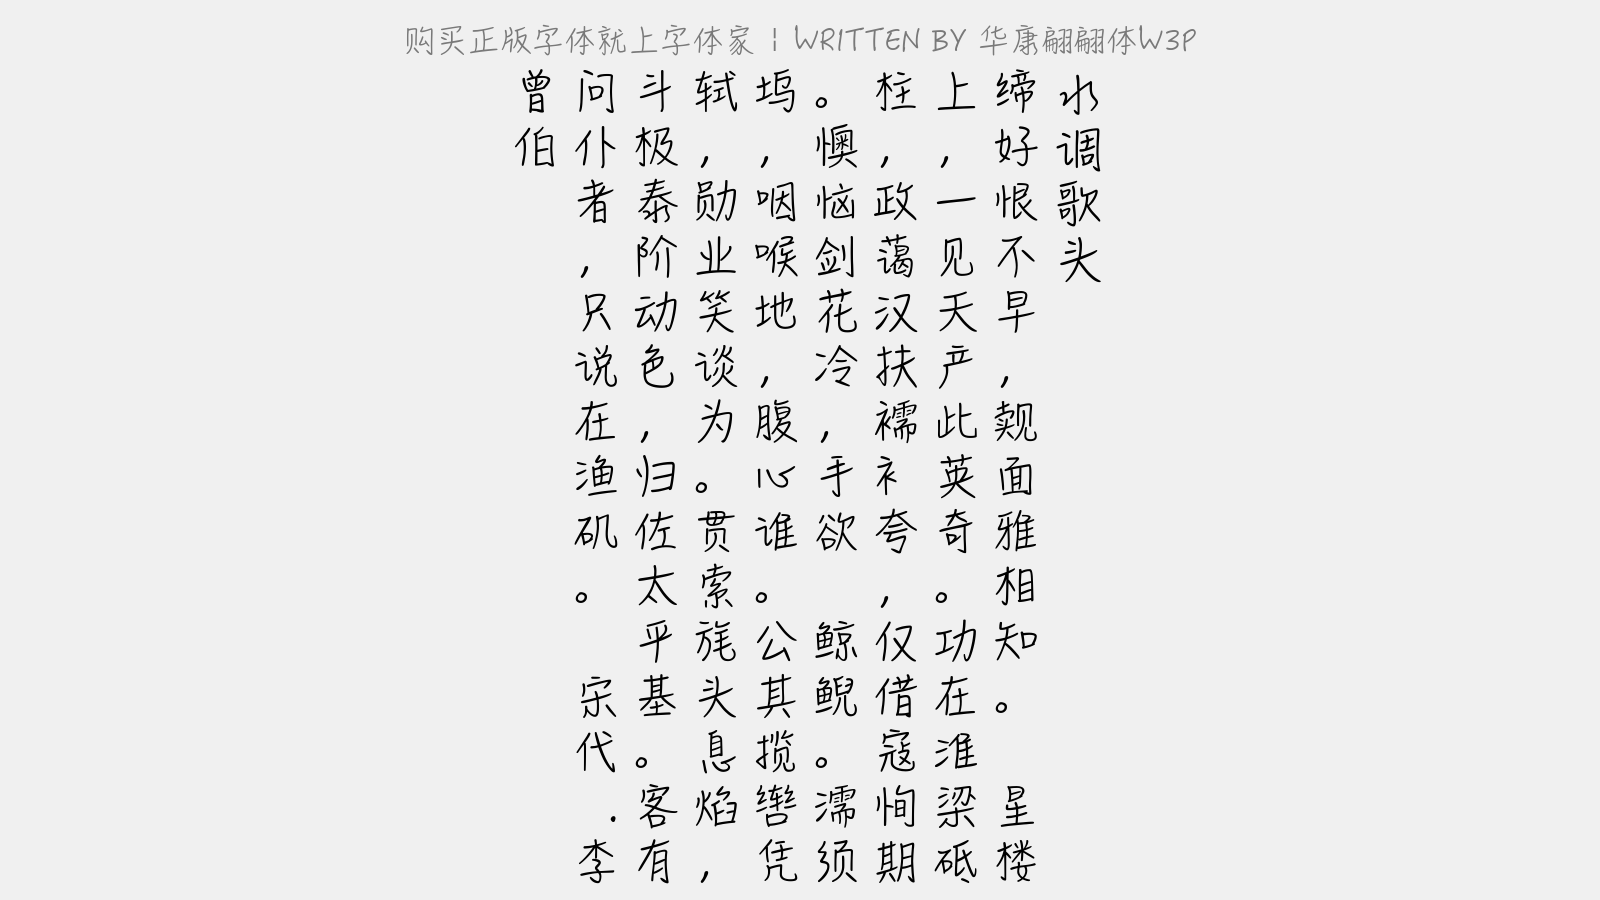 购买正版字体就上字体家 | WRITTEN BY 华康翩翩体W3P
水调歌头
缔好恨不早，觌面雅相知。 星楼
上，一见天产此英奇。功在淮梁砥
柱，政蔼汉扶襦衤夸，仅借寇恂期
。懊恼剑花冷，手欲 鲸鲵。濡须
坞，咽喉地，腹心谁。公其揽辔凭
轼，勋业笑谈为。贯索旄头息焰，
斗极泰阶动色，归佐太平基。客有
问仆者，只说在渔矶。 宋代.李
曾伯